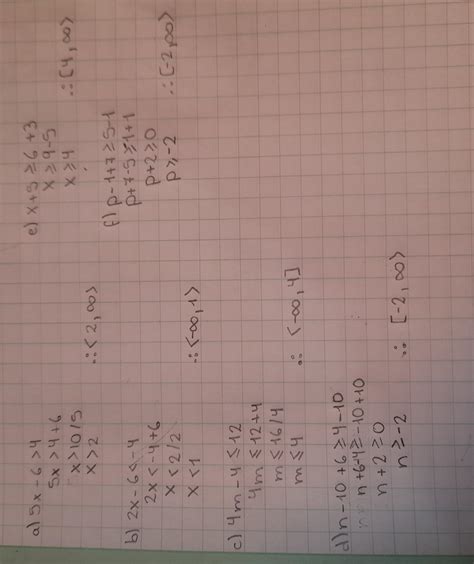 a) 5x - 6 > 4
5x > 4 + 6
x > 10/5
x > 2 ∴ ⟨2, ∞⟩
b) 2x - 6 < -4
2x < -4 + 6
x < 2/2
x < 1 ∴ ⟨-∞, 1⟩
c) 4m - 4 ≤ 12
4m ≤ 12 + 4
m ≤ 16/4
m ≤ 4 ∴ ⟨-∞, 4]
d) n - 10 + 6 ≥ 4 - 10
n + 6 - 4 ≥ -10 + 10
n + 2 ≥ 0
n ≥ -2 ∴ [-2, ∞⟩
e) x + 5 ≥ 6 + 3
x ≥ 9 - 5
x ≥ 4 ∴ [4, ∞⟩
f) p - 1 + 7 ≥ 5 - 1
p + 7 - 5 ≥ -1 + 1
p + 2 ≥ 0
p ≥ -2 ∴ [-2, ∞⟩